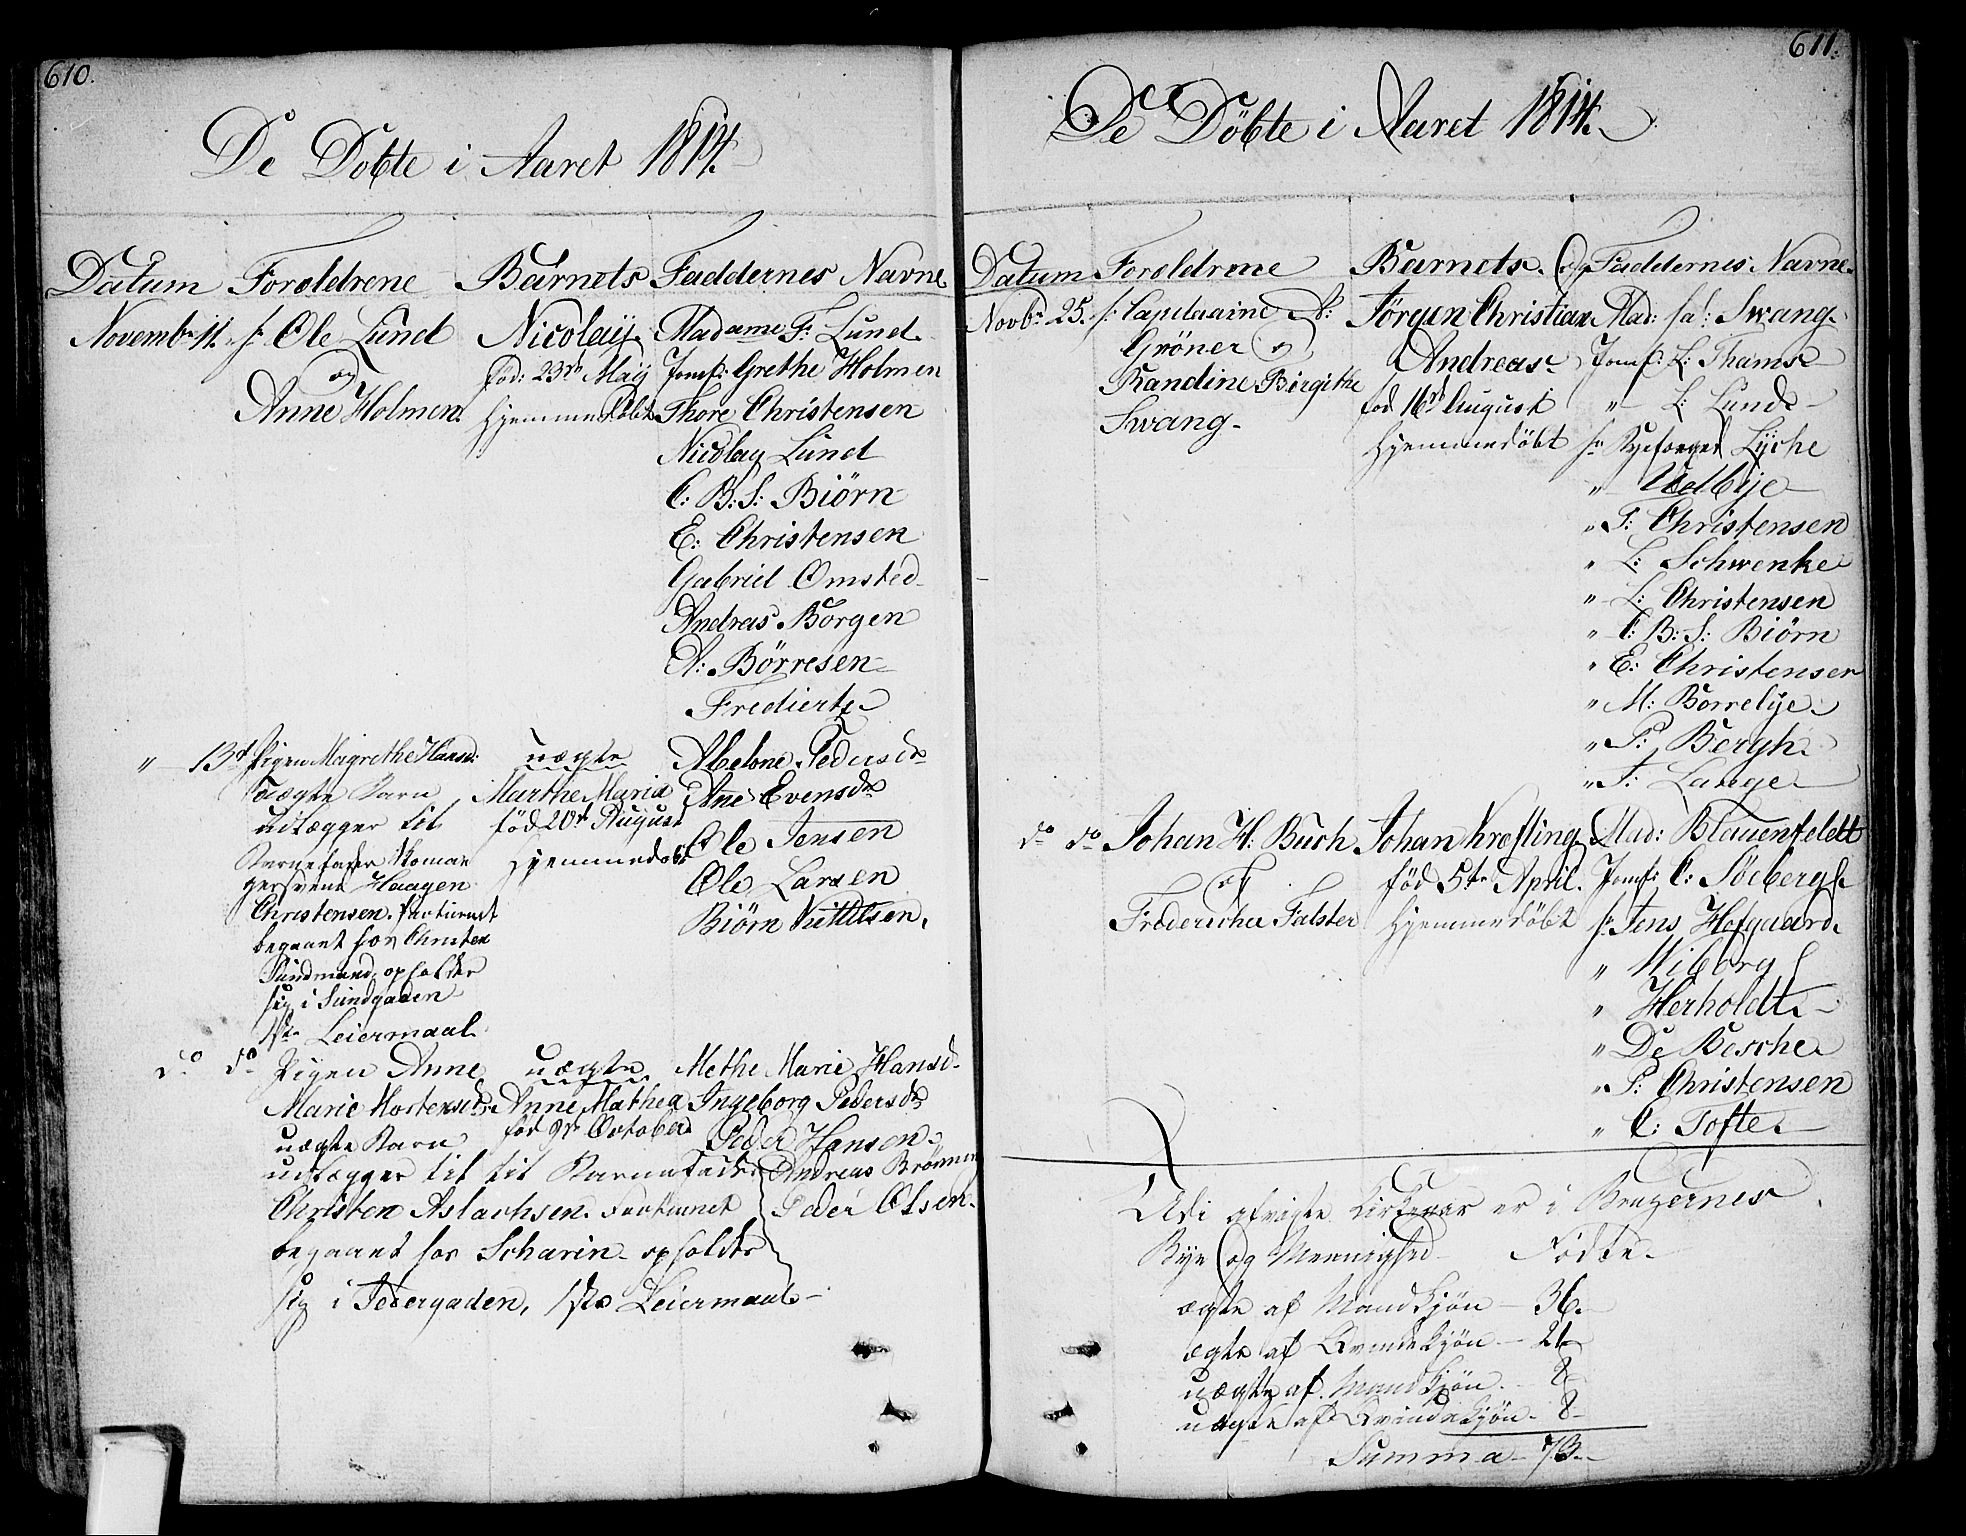 610.
De Döbte i Aaret 1814.
Datum Foroldrene Barnets Faddernes Navne
Novembr 11. hr Ole Lund
og
Anne Holmen.
Nicolaÿ.
föd: 23de Maÿ
hjemmedöbt
Madame F: Lund.
Jomf: Grethe Holmen
Thore Christensen
Nicolay Lund
C: B: S: Biörn
E: Christensen
Gabriel Omsted
Andreas Borgen
A: Börresen
Fredierts
" 13de Pigen Magrethe Hansd:
uægte Barn
udlægger til
Barnefader
Haagen
Christensen. Partieret
begaaet hos Christen
Sundmand, opholder
sig i Sundgaden
1ste Leiermaal.
uægte
Marthe Maria
föd 20de August
hjemmedöbt
Abelone Pedersdr
Ane Evensdr
Ole Jensen
Ole Larsen
Biörn Kittilsen.
do do Pigen Anne
Marie Mortensdr
uægte Barn
udlægger til til Barnefader
Christen Aslachsen.
begaaet hos Scharin opholder
sig i Tedergaden, 1ste Leiermaal
uægte
Anne Mathea
föd 9de October
Methe Marie Hansd.
Ingeborg Pedersdr
Peder Hansen
Andreas Brönnen
Peder Olsen.
611.
De Döbte i Aaret 1814.
Datum Foroldrene Barnets og Faddernes Navne
Novbr 25. hr Capitaine N:
Gröner og
Randine Birgithe
Swang.
Jörgen Christian
Andreas
föd 16de August
hjemmedöbt
Mad: Sal: Swang.
Jomf: L: Thams
" L: Lund
hr Lyche
" Uelbye
" T: Christensen
" L: Schwenke
" L: Christensen
" C: B: S: Biörn
" E: Christensen
" M: Borrelye
" P: Bergh.
" T: Lange
do do Johan H: Buch
og
Fredericha Falster
Johan Kræfting
föd 5te April.
hjemmedöbt
Mad: Blauenfeldt
Jomf: C: Söeberg
hr Jens Hofgaard.
" Wiborg
" Herholdt
" De Besche
" P: Christensen
" C: Tofte.
Udi afvigte Kirkeaar er i Bragernes
Bye og Mennighed Födte
ægte af Mandkjön - 36.
ægte af Qvindekjön - 21
uægte af Mandkjön. - 8
uægte af Qvindekjön. - 8
Summa 73.